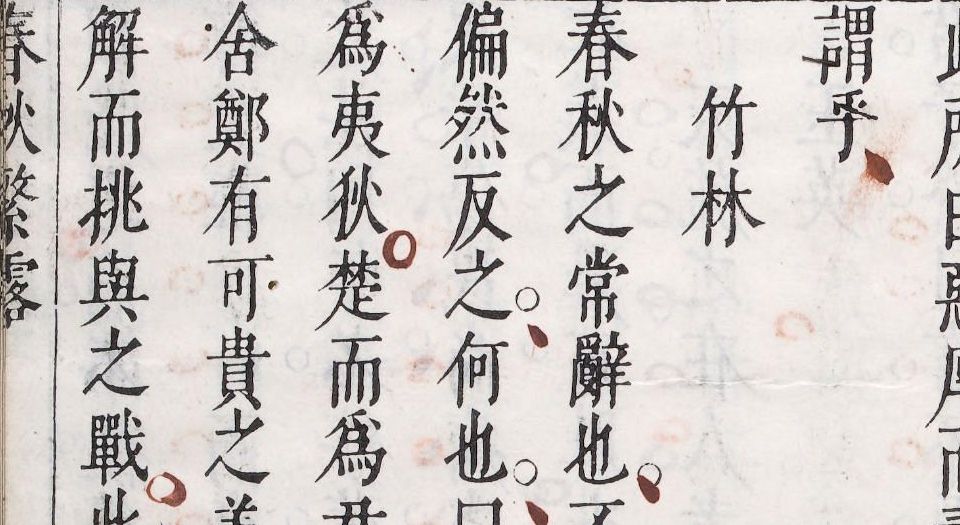 所由惡厚而
謂乎
竹林
春秋之常辭也不
偏然反之何也曰
爲夷狄楚而爲君
舍鄭有可貴之美
解而挑與之戰此
春秋繁露